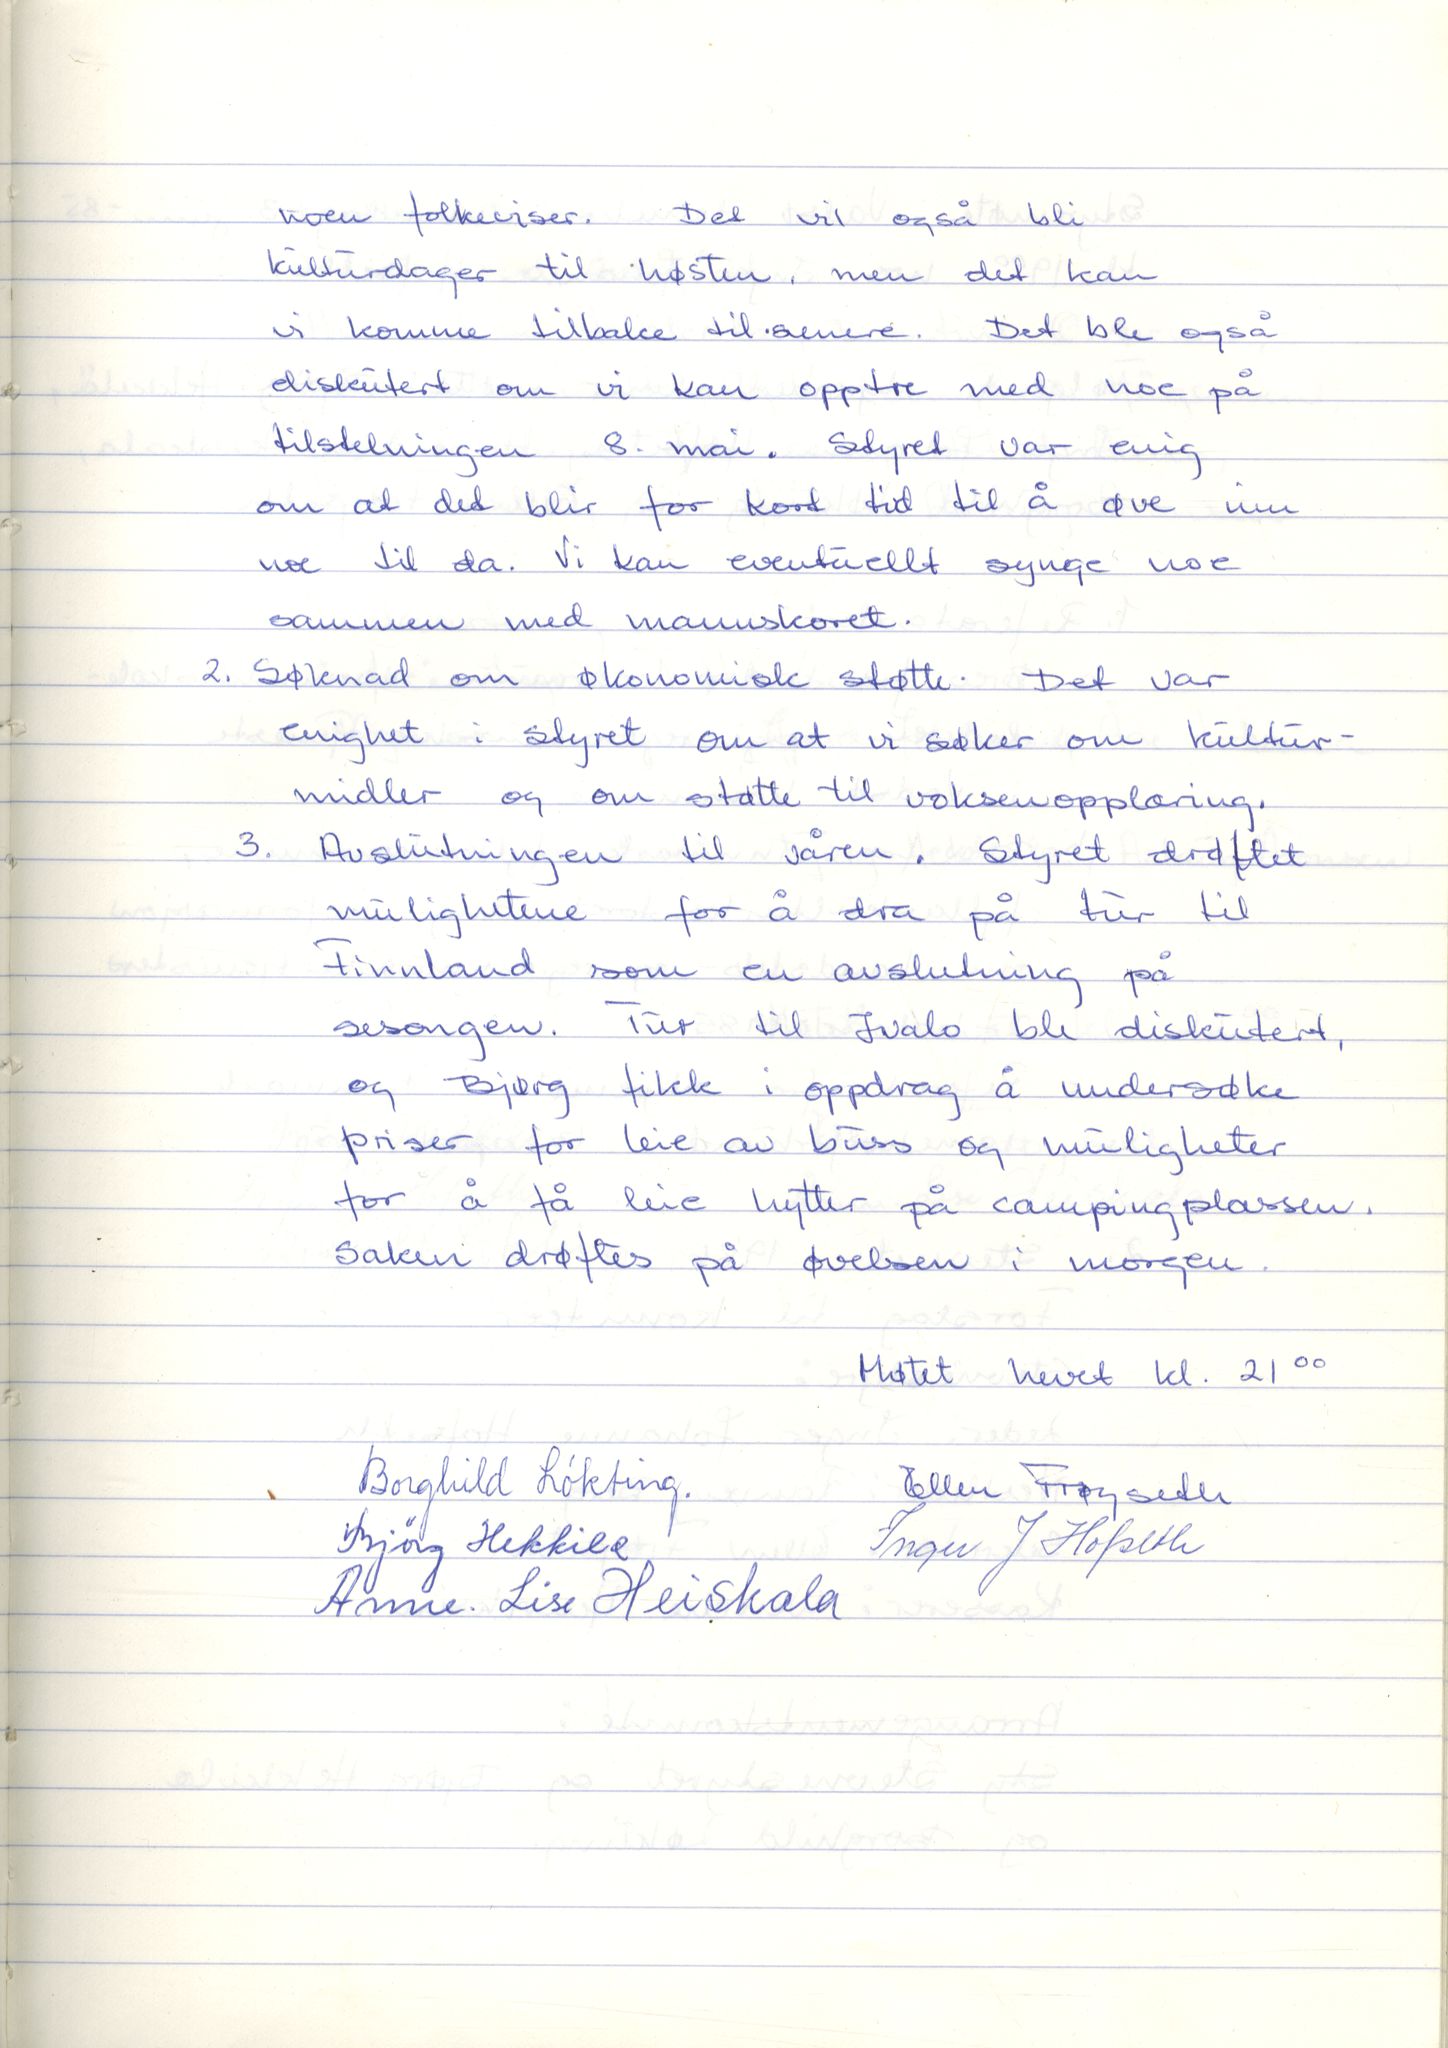 noen folkeviser. Det vil også bli
kulturdager til høsten, men det kan
vi komme tilbake til senere. Det ble også
diskutert om vi kan opptre med noe på
tilstelningen 8. mai. Styret var enig
om at det blir for kort tid til å øve inn
noe til da. Vi kan eventuellt synge noe
sammen med mannskoret.
2. Søknad om økonomisk støtte. Det var
enighet i styret om at vi søker om kultur-
midler og om støtte til voksenopplæring.
3. Avslutningen til våren. Styret drøftet
mulighetene for å dra på tur til
Finnland som en avslutning på
sesongen. Tur til Ivalo ble diskutert,
og Bjørg fikk i oppdrag å undersøke
priser for leie av buss og muligheter
for å få leie hytter på campingplassen.
Saken drøftes på øvelsen i morgen.
Møtet hevet kl. 21 00
Borghild Løkting. Ellen Frøyseth
Bjørg Hekkila Inger J Hofseth
Anne. Lise Heiskala